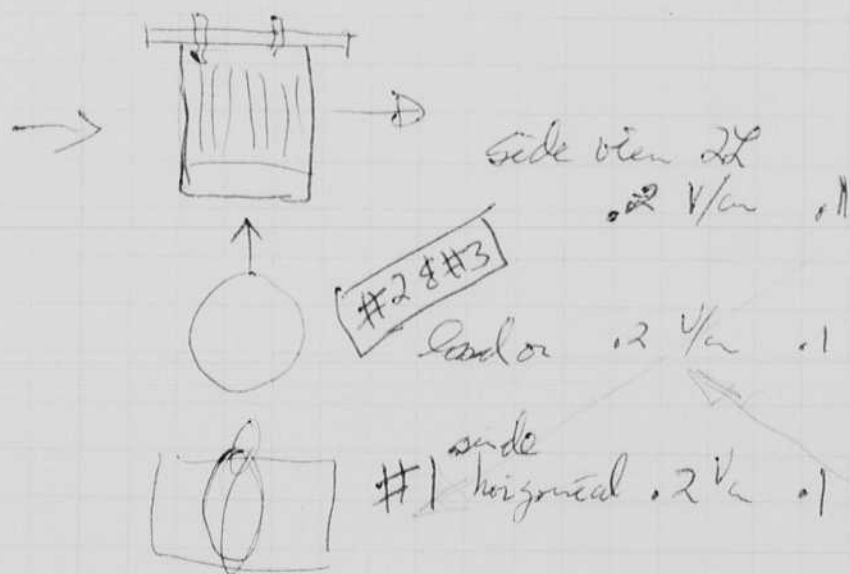 side view 2L
.2 V/cm .1
#2 & #3
.2 V/cm .1
side
#1 horizontal .2 V/cm .1